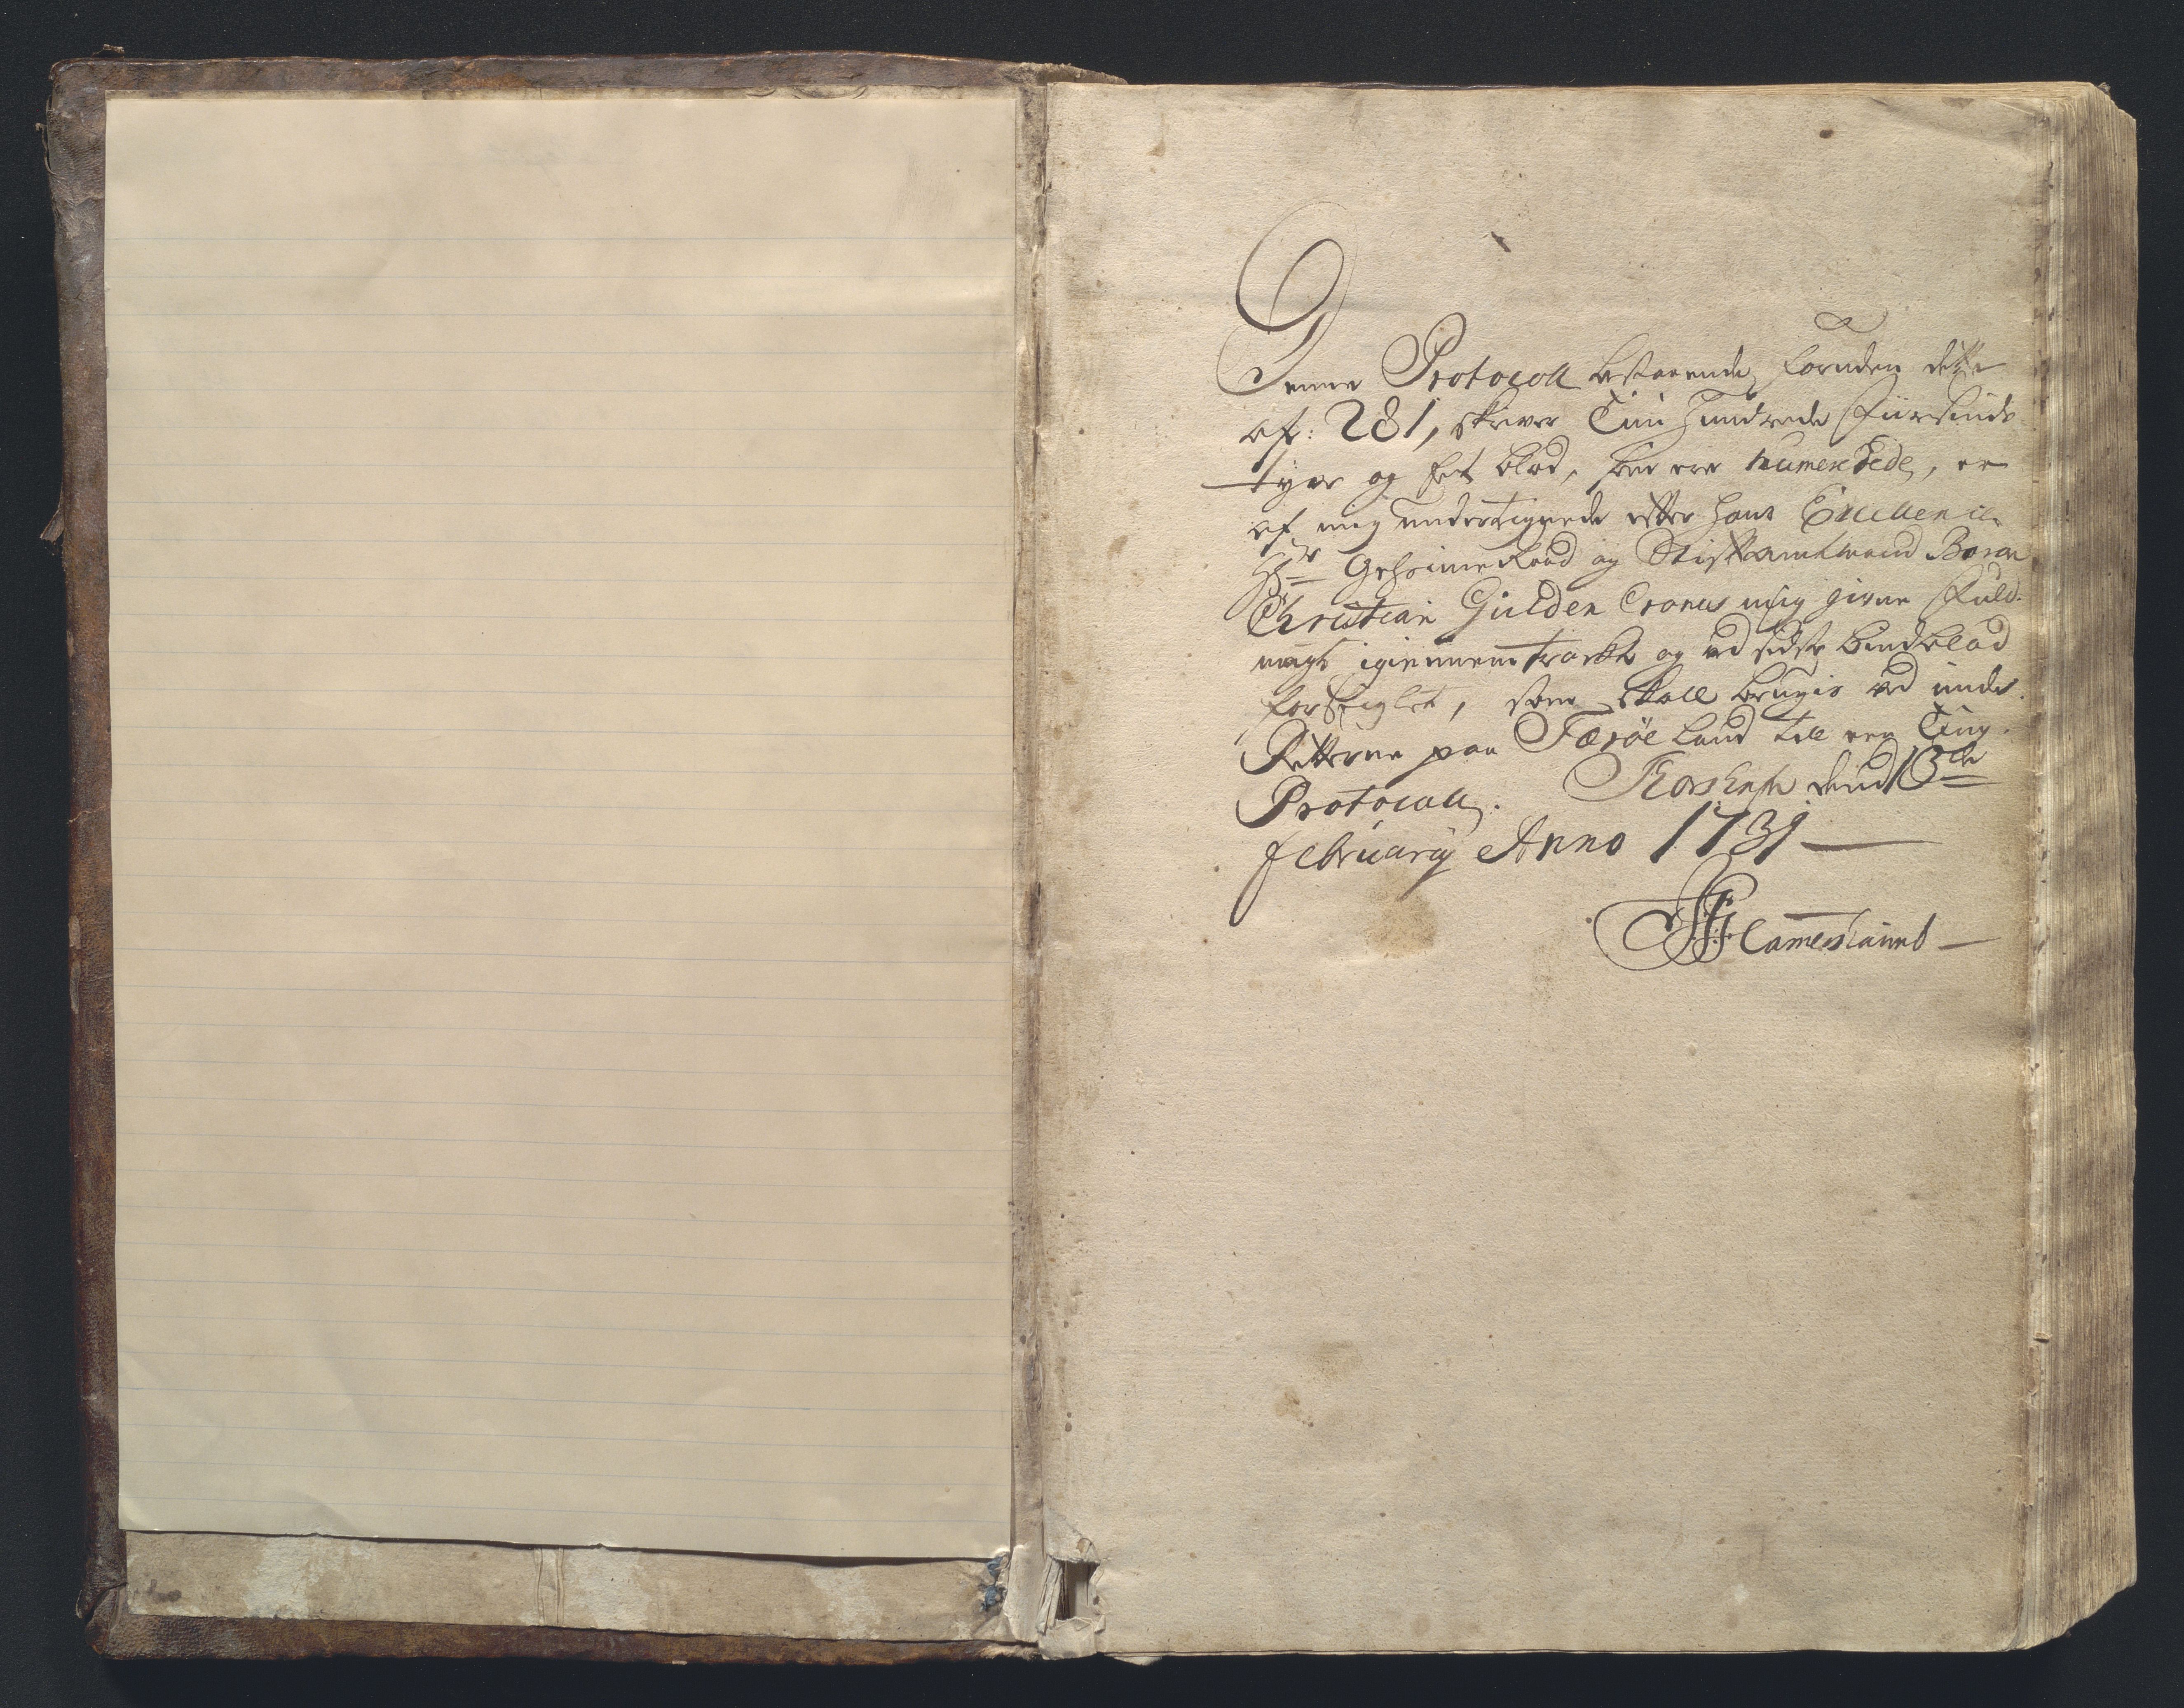 Denne Protocoll bestaaende foruden dette
af: 281, skriver Tuu hundrede Fiirsinds
tyve og Eet blad, som ere numererede, er
af mig underteignede efter hans Excellence
Hr Geheime Raad og Stiftamtmand Baron
Christian Gülden Crones mig givne Fuld-
magt igiennemtrækt og ved sidste bindeblad
forseiglet, som skall brugis ved under
Retterne paa Færöe Land till een Ting-
Protocoll. den 13de
February Anno 1731